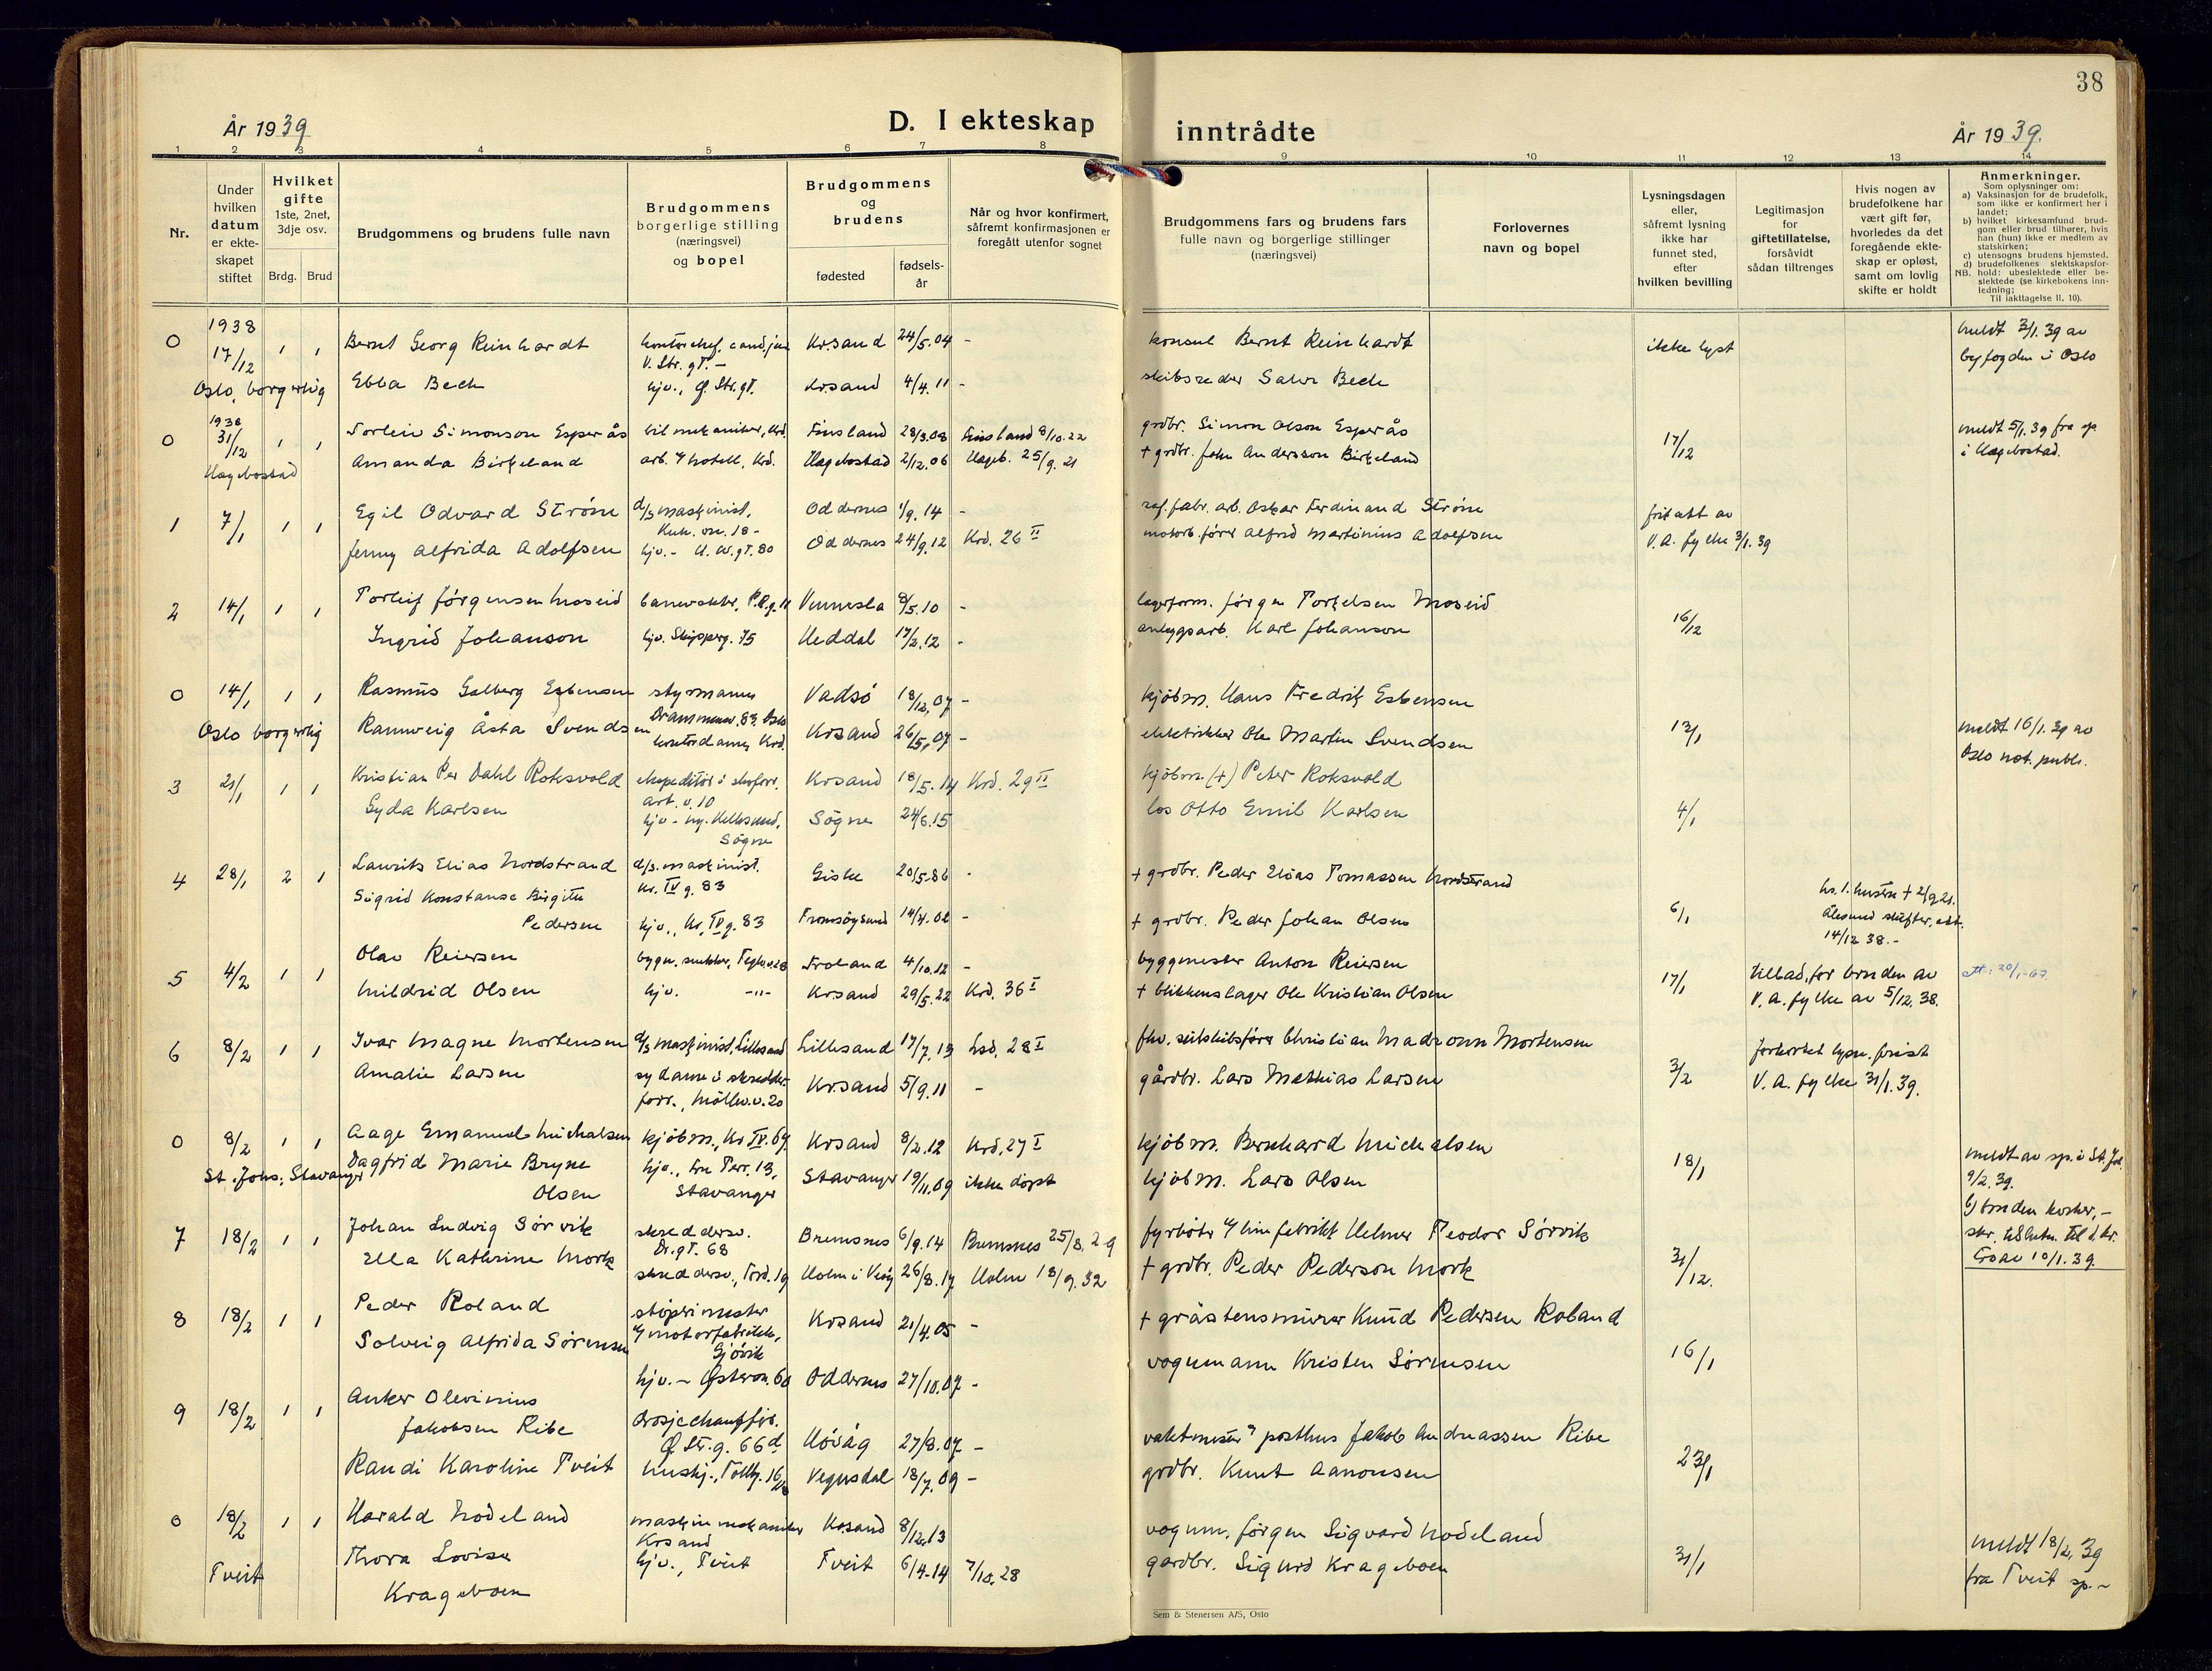 38
År 1939
D. I ekteskap inntrådte
År 1939.
1 2 3 4 5 6 7 8 9 10 11 12 13 14
Nr.
Under hvilken datum er ekte-skapet stiftet
Hvilket gifte 1ste, 2net, 3dje osv.
Brdg. Brud
Brudgommens og brudens fulle navn
Brudgommens borgerlige stilling (næringsvei) og bopel
Brudgommens og brudens
fødested
fødsels-år
Når og hvor konfirmert, såfremt konfirmasjonen er foregått utenfor sognet
Brudgommens fars og brudens fars fulle navn og borgerlige stillinger (næringsvei)
Forlovernes navn og bopel
Lysningsdagen eller, såfremt lysning ikke har funnet sted, efter hvilken bevilling
Legitimasjon for giftetillatelse, forsåvidt sådan tiltrenges
Hvis nogen av brudefolkene har vært gift før, hvorledes da det foregående ekte-skap er opløst, samt om lovlig skifte er holdt
Anmerkninger.
Som oplysninger om:
a) Vaksinasjon for de brudefolk, som ikke er konfirmert her i landet;
b) hvilket kirkesamfund brud-gom eller brud tilhører, hvis han (hun) ikke er medlem av statskirken;
c) utensogns brudens hjemsted.
d) brudefolkenes slektskapsfor-hold: ubeslektede eller be-slektede (se kirkebokens inn-ledning;
NB. Til iakttagelse II. 10).
0 1938 17/12 1 1 Bernt Georg Reinhardt kontorchef, cand. jur. V. Str. gt. - Kr.sand 24/5.04 - konsul Bernt Reinhardt ikke lyst meldt 3/1.39 av
Oslo, borgerlig Ebba Bech hjv., Ø. Str. gt. Krsand 4/4.11 - skibsreder Salve Bech byfogden i Oslo
0 1938 31/12 1 1 Torleiv Simonson Esperås bilmekaniker, Krd. Finsland 28/3.08 Finsland 8/10.22 grdbr. Simon Olson Esperås 17/12 meldt 5/1.39 fra sp.
Hægebostad Amanda Birkeland arb. v/ hotell, Krd. Hægebostad 2/12.06 Hægeb. 25/9.21 + grdbr. John Andersson Birkeland i Hægebostad.
1 7/1 1 1 Egil Odvard Strøm d/s maskinist, Oddernes 1/9.14 - raf. fabr. arb. Oskar Ferdinand Strøm fritatt av
Jenny Alfrida Adolfsen hjv. - H. W. gt. 80 Oddernes 24/9.12 Krd. 26 II motorb. fører Alfred Martinius Adolfsen V. A. fylke 3/1.39
2 14/1 1 1 Torleif Jørgensen Moseid Vennesla 8/5.10 - lagerform. Jørgen Torkelsen Moseid 16/12
Ingrid Johanson hjv. Skipperg. 75 Heddal 17/2.12 - anleggsarb. Karl Johanson
0 14/1 1 1 Rasmus Galberg Esbensen styrmann Vadsø 18/12.07 - kjøbm. Hans Fredrik Esbensen
Drammensv. 83. Oslo
Oslo borgerlig Rannveig Åsta Svendsen kontordame, Krd. Krsand 26/5.07 - elektriker Ole Martin Svendsen 13/1 meldt 16/1.39 av
Oslo not. publ.
3 21/1 1 1 Kristian Per Dahl Roksvold ekspeditør i skoforr. Krsand 18/5.14 Krd. 29 II kjøbm. (+) Peter Roksvold
Art. v. 10
Gyda Karlsen hjv - ny. Hellesund, Søgne 24/6.15 los Otto Emil Karlsen 4/1
Søgne
4 28/1 2 1 Laurits Elias Nordstrand d/s. maskinist. Giske 20/5.86 - + grdbr. Peder Elias Tomassen Nordstrand
Kr. IV g. 83
Sigrid Konstanse Birgitte
Pedersen hjv., Kr. IV g. 83 Tromsøysund 14/4.02 - + grdbr. Peder Johan Olsen 6/1 hs. 1. hustru + 2/9.21. Ålesund skifter. att. 14/12 38. -
5 4/2 1 1 Olav Reiersen bygn. snekker, Teglv. 28 Froland 4/10.12 - byggmester Anton Reiersen 17/1 tillad. for bruden av
Mildrid Olsen hjv. -"- Krsand 29/5.22 Krd. 36 I + blikkenslager Ole Kristian Olsen V. A. fylke av 5/12.38.
6 8/2 1 1 Ivar Magne Mortensen d/s maskinist, Lillesand Lillesand 17/7.13 Lsd. 28 I fhv. seilskibsfører Christian Madsonn Mortensen forkortet lysn. frist
Amalie Larsen sydame i skredder- Krsand 5/9.11 - gårdbr. Lars Mathias Larsen 3/2 V. A. fylke 31/1.39.
forr., Møllev. v. 20
0 8/2 1 1 Aage Emanuel Michalsen kjøbm., Kr. IV. 69. Krsand 8/2.12 Krd. 27 I kjøbm. Bernhard Michalsen 18/1
St. Johs., Stavanger Dagfrid Marie Bryne hjv., Terr. 13, Stavanger 19/11.09 ikke døpt kjøbm. Lars Olsen meldt av sp. i St. Joh. 9/2.39.
Olsen Stavanger
7 18/2 1 1 Johan Ludvig Sørvik skreddersv. Bremsnes 6/9.14 Bremsnes 25/8.29 fyrbøter v/ limfabrikk Helmer Teodor Sørvik
Dr. gt. 68
Ella Kathrine Mork skreddersv., Tord. 19 Holm i Veøy 26/8.17 Holm 18/9.32 + grdbr. Peder Pederson Mork 31/12.
8 18/2 1 1 Peder Roland støperimester Krsand 21/4.05 - + gråstensmurer Knud Pedersen Roland
v/ motorfabrikk,
Gjøvik
Solveig Alfrida Sørensen hjv. - Østerv. 60 Oddernes 27/10.07 - vognmann Kristen Sørensen 16/1
9 18/2 1 1 Anker Olevinius
Jakobsen Ribe drosjechauffør. Høvåg 27/8.07 - vaktmester v/ posthus Jakob Andreassen Ribe
Ø Str. g. 66 d
Randi Karoline Tveit hushj., Tollb. 16 Vegusdal 18/7.09 - grdbr. Knut Aanonsen 23/1
0 18/2 1 1 Harald Nodeland maskinmekaniker Krsand 8/12.13 vognm. Jørgen Sigvard Nodeland
Krsand
Tveit Thora Lovise hjv., Tveit Tveit 6/4.14 7/10.28 gardbr. Sigurd Krageboen 31/1 meldt 18/2.39
Krageboen fra Tveit sp. -
Sem & Stenersen A/S, Oslo